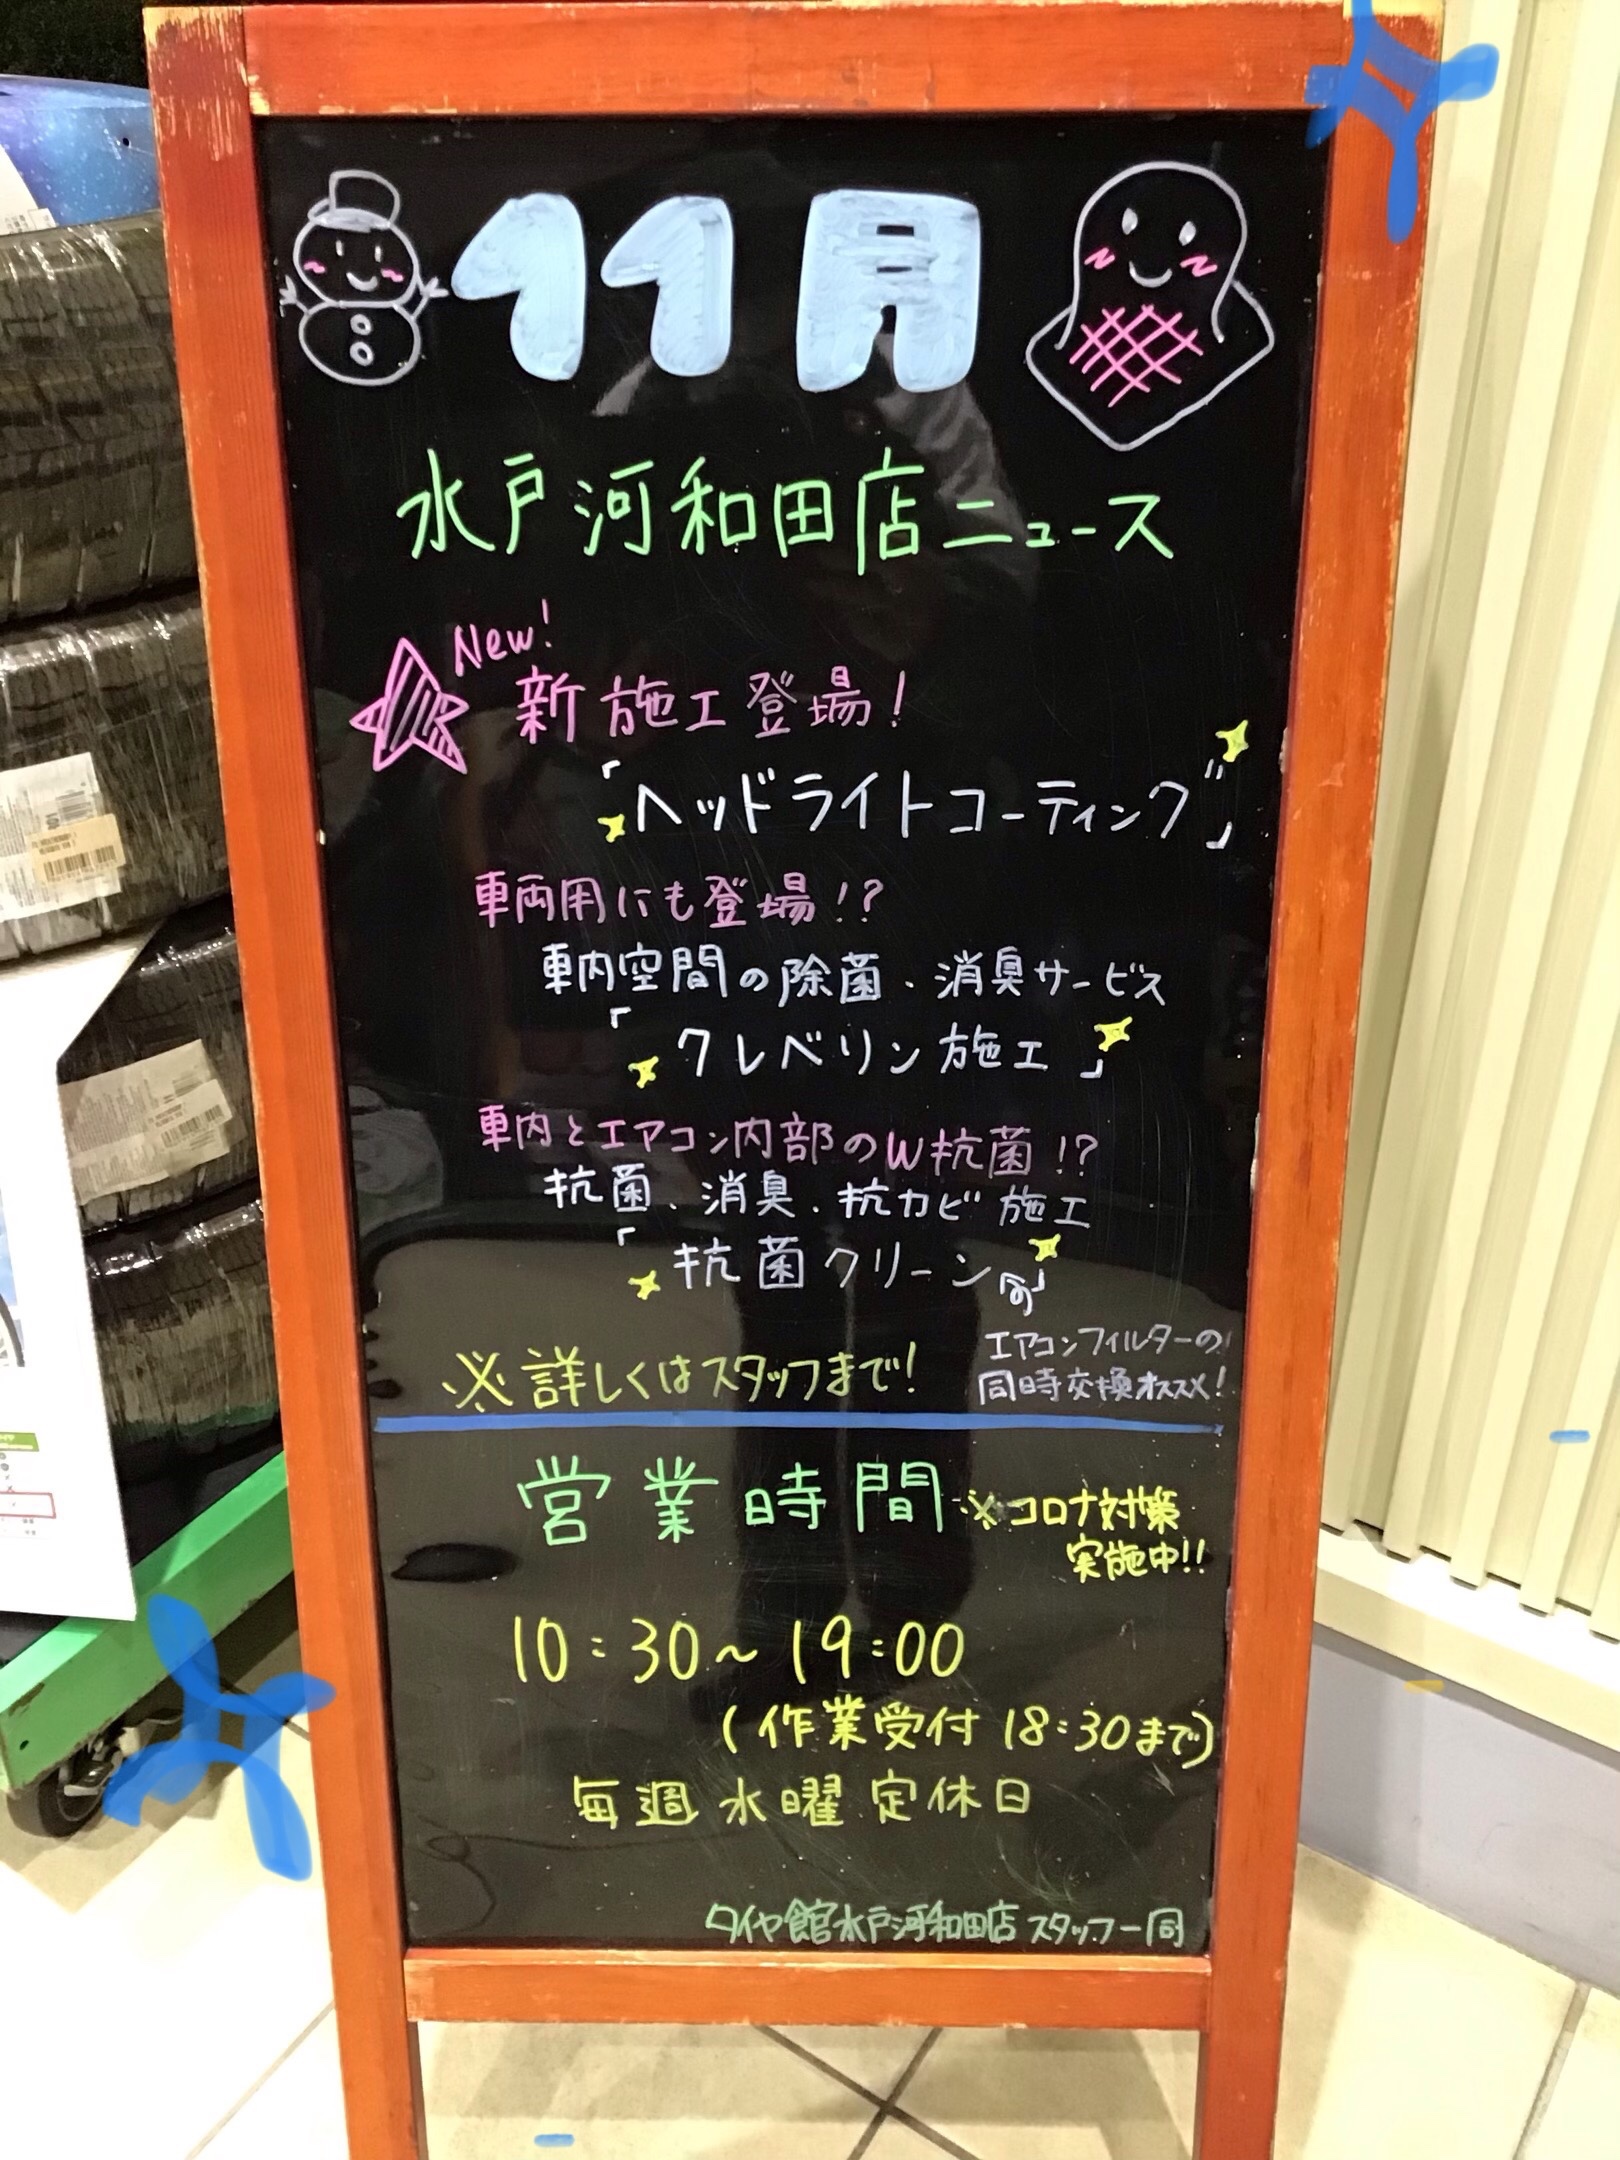 11月
水戸河和田店ニュース
New!
新施工登場!
「ヘッドライトコーティング」
車両用にも登場!?
車内空間の除菌、消臭サービス
「クレベリン施工」
車内とエアコン内部のW抗菌!?
抗菌、消臭、抗カビ施工
「抗菌クリーン」
エアコンフィルターの
同時交換オススメ!
※詳しくはスタッフまで!
営業時間 ※コロナ対策
実施中!!
10:30~19:00
(作業受付 18:30まで)
毎週水曜定休日
タイヤ館水戸河和田店 スタッフ一同